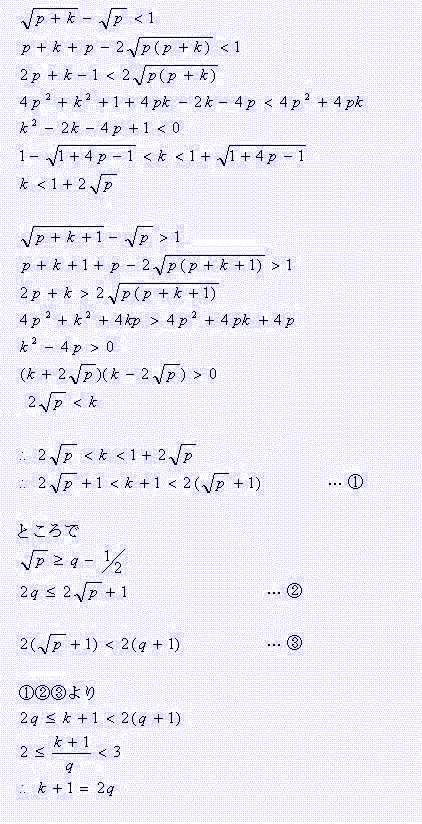 √(p+k) − √p < 1
p+k+p−2√(p(p+k)) < 1
2p+k−1 < 2√(p(p+k))
4p²+k²+1+4pk−2k−4p < 4p²+4pk
k²−2k−4p+1 < 0
1−√(1+4p−1) < k < 1+√(1+4p−1)
k < 1+2√p
√(p+k+1) − √p > 1
p+k+1+p−2√(p(p+k+1)) > 1
2p+k > 2√(p(p+k+1))
4p²+k²+4kp > 4p²+4pk+4p
k²−4p > 0
(k+2√p)(k−2√p) > 0
2√p < k
∴ 2√p < k < 1+2√p
∴ 2√p+1 < k+1 < 2(√p+1) … ①
ところで
√p ≥ q − 1/2
2q ≤ 2√p+1 … ②
2(√p+1) < 2(q+1) … ③
①②③より
2q ≤ k+1 < 2(q+1)
2 ≤ (k+1)/q < 3
∴ k+1 = 2q